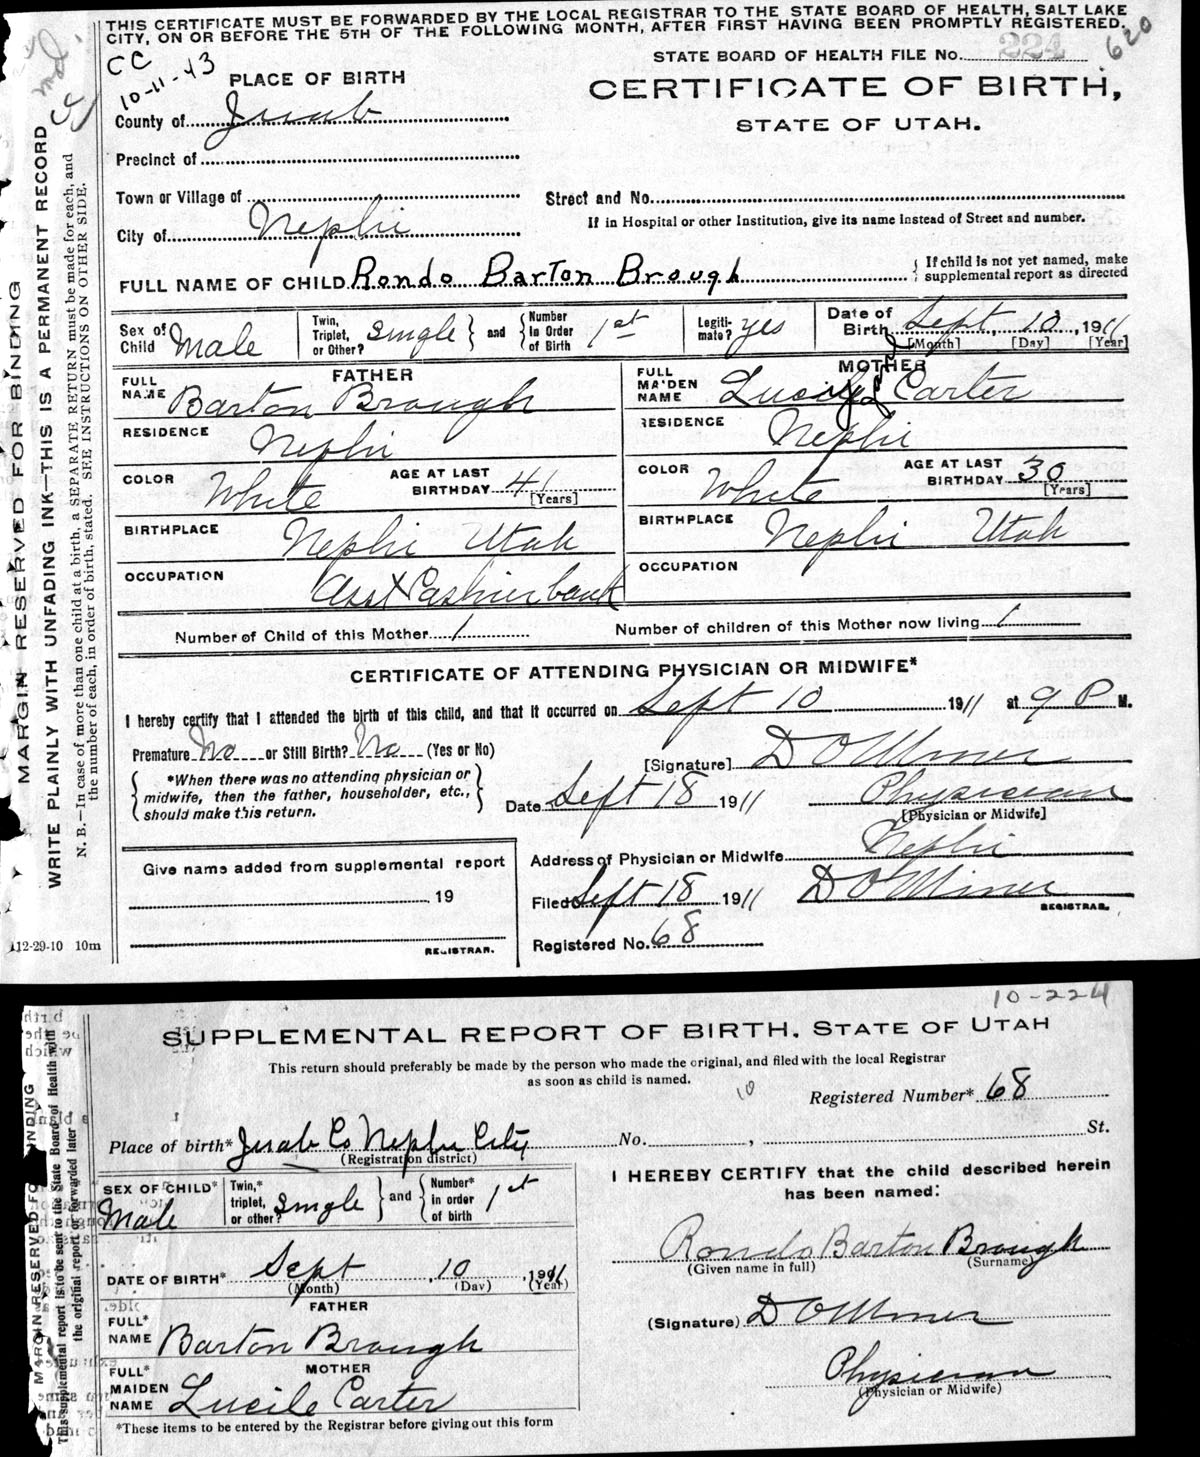 THIS CERTIFICATE MUST BE FORWARDED BY THE LOCAL REGISTRAR TO THE STATE BOARD OF HEALTH, SALT LAKE
CITY, ON OR BEFORE THE 5TH OF THE FOLLOWING MONTH, AFTER FIRST HAVING BEEN PROMPTLY REGISTERED.
620
CC
10-11-43
STATE BOARD OF HEALTH FILE No. 224
PLACE OF BIRTH
CERTIFICATE OF BIRTH,
STATE OF UTAH.
County of Juab
Precinct of
Town or Village of
Street and No.
If in Hospital or other Institution, give its name instead of Street and number.
City of Nephi
FULL NAME OF CHILD Rondo Barton Brough
If child is not yet named, make
supplemental report as directed
Sex of Child Male
Twin, Triplet, or Other? single and Number in Order of Birth 1st
Legiti-mate? yes
Date of Birth Sept, 10, 1911
[Month] [Day] [Year]
FATHER
FULL NAME Barton Brough
RESIDENCE Nephi
COLOR White
AGE AT LAST BIRTHDAY 41
[Years]
BIRTHPLACE Nephi Utah
OCCUPATION Asst Cashier bank
MOTHER
FULL MAIDEN NAME Carter
RESIDENCE Nephi
COLOR White
AGE AT LAST BIRTHDAY 30
[Years]
BIRTHPLACE Nephi Utah
OCCUPATION
Number of Child of this Mother 1
Number of children of this Mother now living 1
CERTIFICATE OF ATTENDING PHYSICIAN OR MIDWIFE*
I hereby certify that I attended the birth of this child, and that it occurred on Sept 10 1911 at 9 P M.
Premature No or Still Birth? No (Yes or No)
*When there was no attending physician or
midwife, then the father, householder, etc.,
should make this return.
[Signature] D O Miner
Date Sept 18 1911
Physician
[Physician or Midwife]
Address of Physician or Midwife Nephi
Filed Sept 18 1911 D O Miner
REGISTRAR.
Registered No. 68
Give name added from supplemental report
19
REGISTRAR.
112-29-10 10m
MARGIN RESERVED FOR BINDING
WRITE PLAINLY WITH UNFADING INK—THIS IS A PERMANENT RECORD
N. B.—In case of more than one child at a birth, a SEPARATE RETURN must be made for each, and
the number of each, in order of birth, stated. SEE INSTRUCTIONS ON OTHER SIDE.
10-224
SUPPLEMENTAL REPORT OF BIRTH. STATE OF UTAH
This return should preferably be made by the person who made the original, and filed with the local Registrar
as soon as child is named.
10
Registered Number* 68
Place of birth* Juab Co Nephi City
(Registration district)
No. , St.
SEX OF CHILD* Male
Twin,* triplet, or other? single and Number* in order of birth 1st
DATE OF BIRTH* Sept 10, 1911
(Month) (Day) (Year)
FATHER
FULL* NAME Barton Brough
MOTHER
FULL* MAIDEN NAME Lucile Carter
*These items to be entered by the Registrar before giving out this form
I HEREBY CERTIFY that the child described herein
has been named:
Rondo Barton Brough
(Given name in full) (Surname)
(Signature) D O Miner
Physician
(Physician or Midwife)
This supplemental report is to be sent to the State Board of Health with
the original report or forwarded later